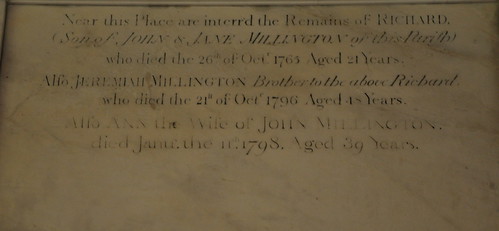 Near this Place are interr'd the Remains of RICHARD,
(Son of JOHN & JANE MILLINGTON of this Parish)
who died the 26th of Octr 1765 Aged 21 Years.
Also JEREMIAH MILLINGTON Brother to the above Richard
who died the 21st of Octr 1796 Aged 48 Years.
Also ANN the Wife of JOHN MILLINGTON,
died Janry. the 11th 1798. Aged 39 Years.